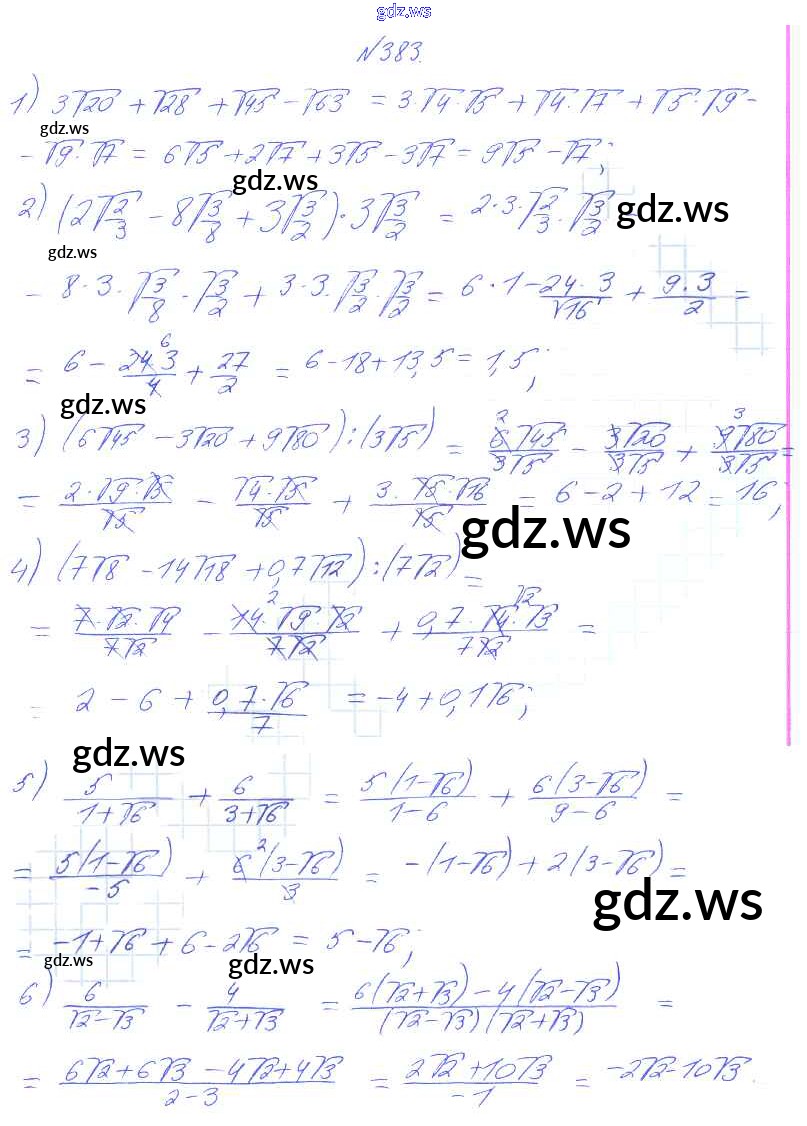 gdz.ws
№383.
1) 3√20 + √28 + √45 − √63 = 3·√4·√5 + √4·√7 + √5·√9 −
gdz.ws
− √9·√7 = 6√5 + 2√7 + 3√5 − 3√7 = 9√5 − √7;
gdz.ws
2) (2√2/3 − 8√3/8 + 3√3/2)·3√3/2 = 2·3·√2/3·√3/2 −
gdz.ws
gdz.ws
− 8·3·√3/8·√3/2 + 3·3·√3/2·√3/2 = 6·1 − 24·3/√16 + 9·3/2 =
= 6 − 24·3/4 + 27/2 = 6 − 18 + 13,5 = 1,5;
gdz.ws
3) (6√45 − 3√20 + 9√80):(3√5) = 6√45/3√5 − 3√20/3√5 + 9√80/3√5 =
= 2·√9·√5/√5 − √4·√5/√5 + 3·√5·√16/√5 = 6 − 2 + 12 = 16;
gdz.ws
4) (7√8 − 14√18 + 0,7√12):(7√2) =
= 7·√2·√4/7√2 − 14·√9·√2/7√2 + 0,7·√4·√3/7√2 =
= 2 − 6 + 0,7·√6/7 = −4 + 0,1√6;
gdz.ws
5) 5/1+√6 + 6/3+√6 = 5(1−√6)/1−6 + 6(3−√6)/9−6 =
= 5(1−√6)/−5 + 6(3−√6)/3 = −(1−√6) + 2(3−√6) =
gdz.ws
= −1+√6 + 6 − 2√6 = 5 − √6;
gdz.ws
gdz.ws
6) 6/√2−√3 − 4/√2+√3 = 6(√2+√3) − 4(√2−√3)/(√2−√3)(√2+√3) =
= 6√2+6√3 − 4√2+4√3/2−3 = 2√2+10√3/−1 = −2√2−10√3.